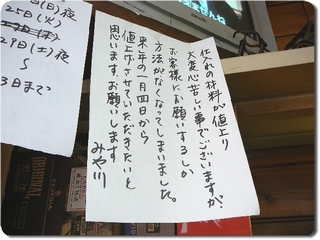 仕入れの材料が値上り
大変心苦しい事でございますが、
お客様にお願いするしか
方法がなくなってしまいました。
来年の一月四日から
値上げさせていただきたいと
思います。お願いします
みや川
(日)夜
25日(火)
29日(土)夜
〜
3日まで
ません